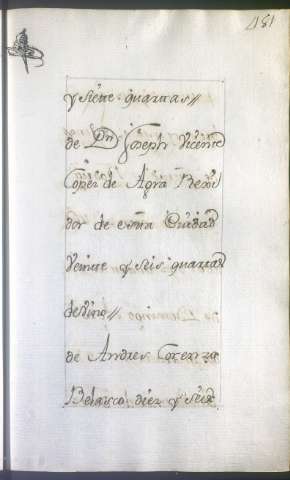 451
y siette quarttas//
de Dn Joseph Vicente
Lopez de Agra Rexi
dor de esta Ciudad
Veintte y seis quarttas
de vino//
de Andres Lorenzo
Belasco diez y seis